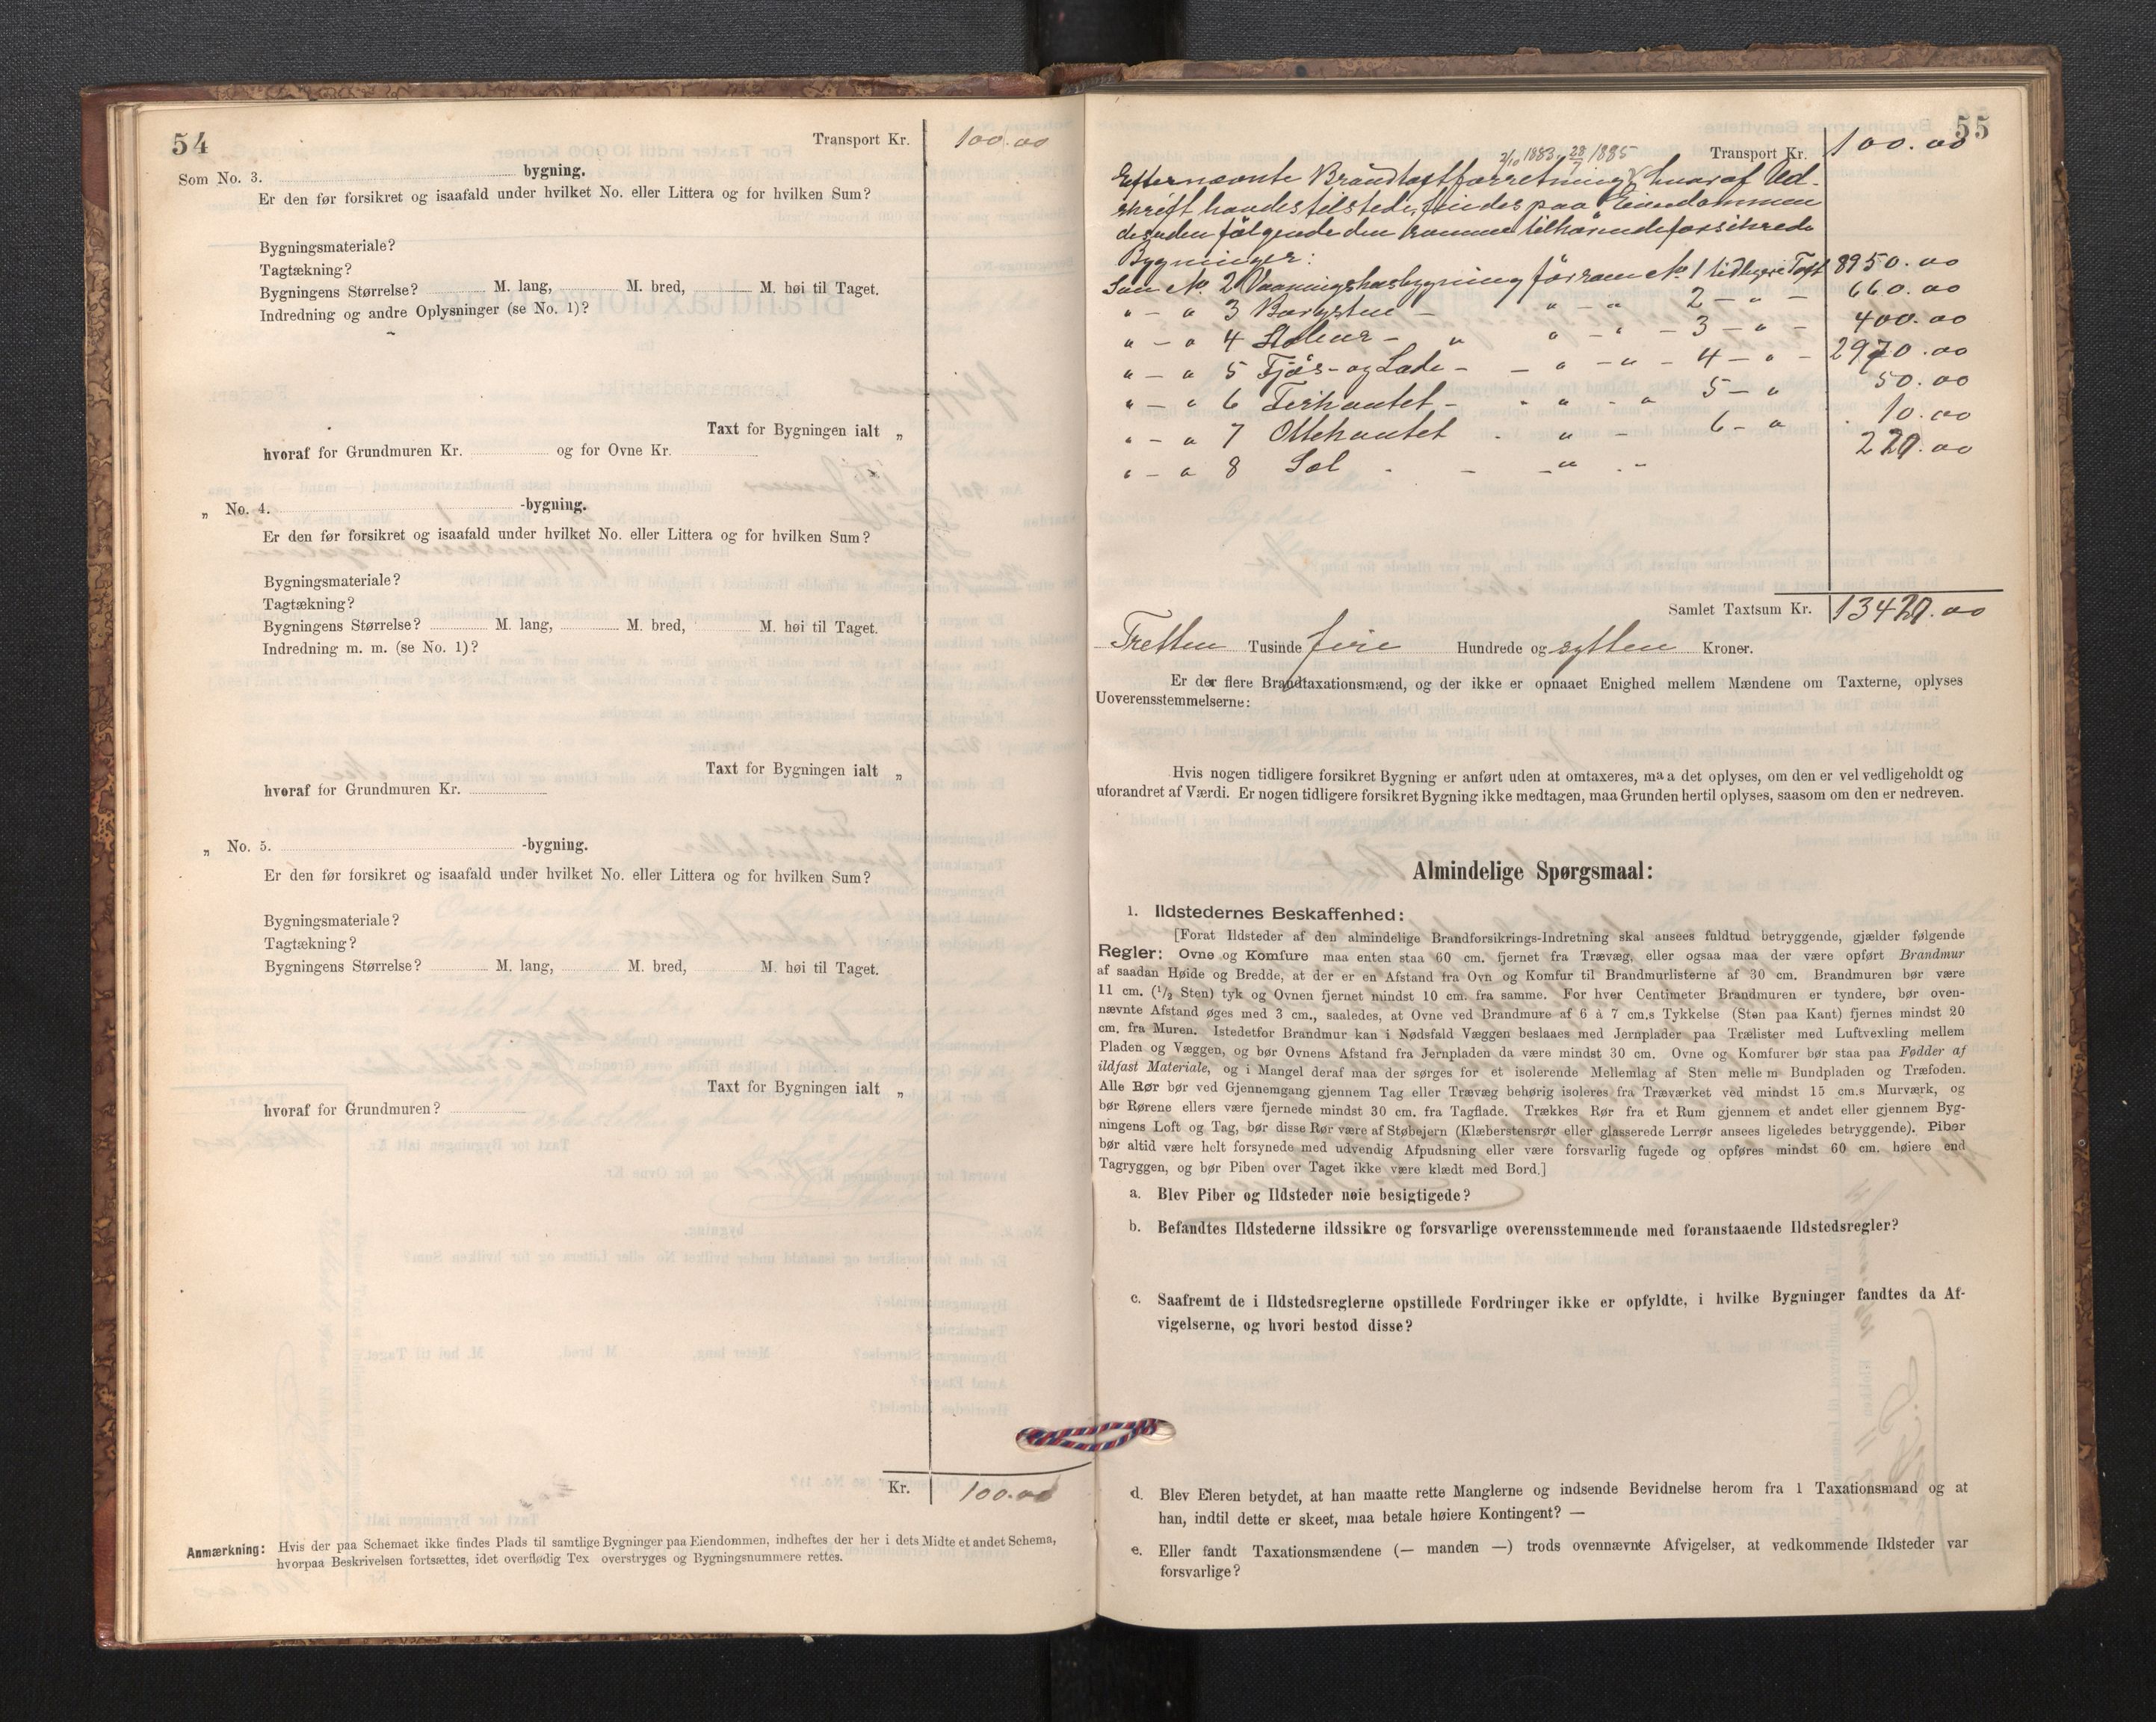 54
Transport Kr. 100.00
Som No. 3. bygning.
Er den før forsikret og isaafald under hvilket No. eller Littera og for hvilken Sum?
Bygningsmateriale?
Tagtækning?
Bygningens Størrelse? M. lang, M. bred, M. høi til Taget.
Indredning og andre Oplysninger (se No. 1)?
Taxt for Bygningen ialt „
hvoraf for Grundmuren Kr. og for Ovne Kr.
„ No. 4. -bygning.
Er den før forsikret og isaafald under hvilket No. eller Littera og for hvilken Sum?
Bygningsmateriale?
Tagtækning?
Bygningens Størrelse? M. lang, M. bred, M. høi til Taget.
Indredning m. m. (se No. 1)?
Taxt for Bygningen ialt „
hvoraf for Grundmuren Kr.
„ No. 5. -bygning.
Er den før forsikret og isaafald under hvilket No. eller Littera og for hvilken Sum?
Bygningsmateriale?
Tagtækning?
Bygningens Størrelse? M. lang, M. bred, M. høi til Taget.
Taxt for Bygningen ialt „
hvoraf for Grundmuren?
Kr. 100.00
Anmærkning: Hvis der paa Schemaet ikke findes Plads til samtlige Bygninger paa Eiendommen, indheftes der her i dets Midte et andet Schema,
hvorpaa Beskrivelsen fortsættes, idet overflødig Tex overstryges og Bygningsnummere rettes.
55
Transport Kr. 100.00
2/10 1883, 28/7 1885
Efternævnte Brandtaxtforretning hvoraf Ud-
skrift havdes tilstede, findes paa Eiendommen
desuden følgende den samme tilhørende forsikrede
Bygninger:
Som No. 2 Vaaningshusbygning før som No. 1 tidligere Taxt 8950.00
" - " 3 Borgstue - " - " 2 - " - 660.00
" - " 4 Stabur - " " - " - 3 - " - 400.00
" - " 5 Fjøs- og Lade - - " - " - 4 - " - 2970.00
" - " 6 Firkantet - " - " 5 - " 50.00
" - " 7 Ottekantet - " - 6 - " 10.00
" - " 8 Sel - - " - 
Samlet Taxtsum Kr.
Tretten Tusinde fire Hundrede og sytten Kroner.
Er der flere Brandtaxationsmænd, og der ikke er opnaaet Enighed mellem Mændene om Taxterne, oplyses
Uoverensstemmelserne:
Hvis nogen tidligere forsikret Bygning er anført uden at omtaxeres, maa det oplyses, om den er vel vedligeholdt og
uforandret af Værdi. Er nogen tidligere forsikret Bygning ikke medtagen, maa Grunden hertil oplyses, saasom om den er nedreven.
Almindelige Spørgsmaal:
1. Ildstedernes Beskaffenhed:
[Forat Ildsteder af den almindelige Brandforsikrings-Indretning skal ansees fuldtud betryggende, gjælder følgende
Regler: Ovne og Komfure maa enten staa 60 cm. fjernet fra Trævæg, eller ogsaa maa der være opført Brandmur
af saadan Høide og Bredde, at der er en Afstand fra Ovn og Komfur til Brandmurlisterne af 30 cm. Brandmuren bør være
11 cm. (1/2 Sten) tyk og Ovnen fjernet mindst 10 cm. fra samme. For hver Centimeter Brandmuren er tyndere, bør oven-
nævnte Afstand øges med 3 cm., saaledes, at Ovne ved Brandmure af 6 à 7 cm.s Tykkelse (Sten paa Kant) fjernes mindst 20
cm. fra Muren. Istedetfor Brandmur kan i Nødsfald Væggen beslaaes med Jernplader paa Trælister med Luftvexling mellem
Pladen og Væggen, og bør Ovnens Afstand fra Jernpladen da være mindst 30 cm. Ovne og Komfurer bør staa paa Fødder af
ildfast Materiale, og i Mangel deraf maa der sørges for et isolerende Mellemlag af Sten mellem Bundpladen og Træfoden.
Alle Rør bør ved Gjennemgang gjennem Tag eller Trævæg behørig isoleres fra Træværket ved mindst 15 cm.s Murværk, og
bør Rørene ellers være fjernede mindst 30 cm. fra Tagflade. Trækkes Rør fra et Rum gjennem et andet eller gjennem Byg-
ningens Loft og Tag, bør disse Rør være af Støbejern (Klæberstensrør eller glasserede Lerrør ansees ligeledes betryggende). Piber
bør altid være helt forsynede med udvendig Afpudsning eller være forsvarlig fugede og opføres mindst 60 cm. høiere end
Tagryggen, og bør Piben over Taget ikke være klædt med Bord.]
a. Blev Piber og Ildsteder nøie besigtigede?
b. Befandtes Ildstederne ildssikre og forsvarlige overensstemmende med foranstaaende Ildstedsregler?
c. Saafremt de i Ildstedsreglerne opstillede Fordringer ikke er opfyldte, i hvilke Bygninger fandtes da Af-
vigelserne, og hvori bestod disse?
d. Blev Eieren betydet, at han maatte rette Manglerne og indsende Bevidnelse herom fra 1 Taxationsmand og at
han, indtil dette er skeet, maa betale høiere Kontingent? —
e. Eller fandt Taxationsmændene (— manden —) trods ovennævnte Afvigelser, at vedkommende Ildsteder var
forsvarlige?